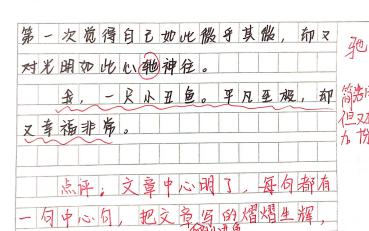 第一次觉得自己如此微乎其微，却又
对光明如此心驰神往。
驰
我，一只小丑鱼。平凡至极，却
又幸福非常。
点评：文章中心明了，每句都有
一句中心句，把文章写的熠熠生辉，